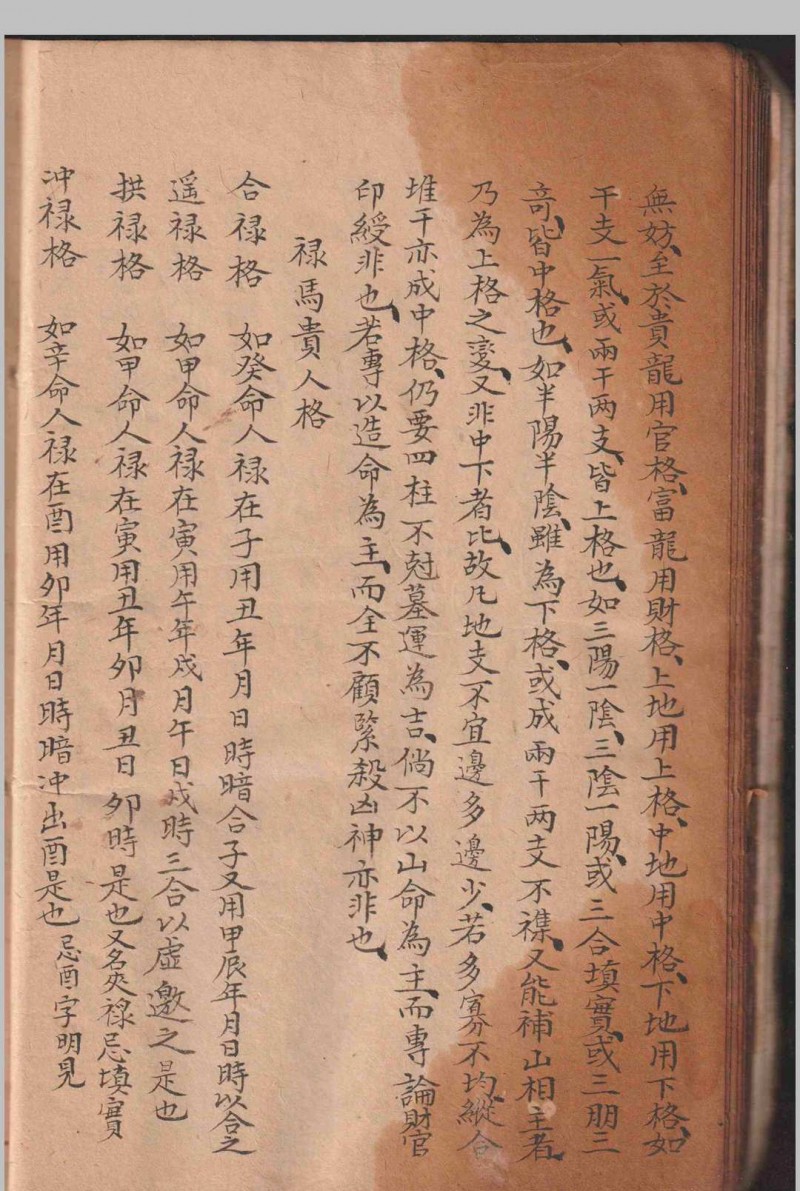 無妨、至於貴龍用官格、富龍用財格、上地用上格、中地用中格、下地用下格、如
干支一氣、或兩干两支、皆上格也、如三陽一陰、三陰一陽、或三合填實、或三朋三
竒、皆中格也、如半陽半陰、雖為下格、或成兩干两支不襍、又能補山相主者、
乃為上格之变、又非中下者比、故凡地支不宜邊多邊少、若多寡不均、縱合
堆干亦成中格、仍要四柱不尅墓運為吉、倘不以山命為主、而專論財官
印綬非也、若專以造命為主、而全不顧緊殺凶神亦非也、
禄馬貴人格
合禄格 如癸命人禄在子用丑年月日時暗合子又用甲辰年月日時以合之
遥禄格 如甲命人禄在寅用午年戍月午日戍時三合以虛邀之是也
拱禄格 如甲命人禄在寅用丑年卯月丑日卯時是也又名夾禄忌填實
冲禄格 如辛命人禄在酉用卯年月日時暗冲出酉是也忌酉字明見